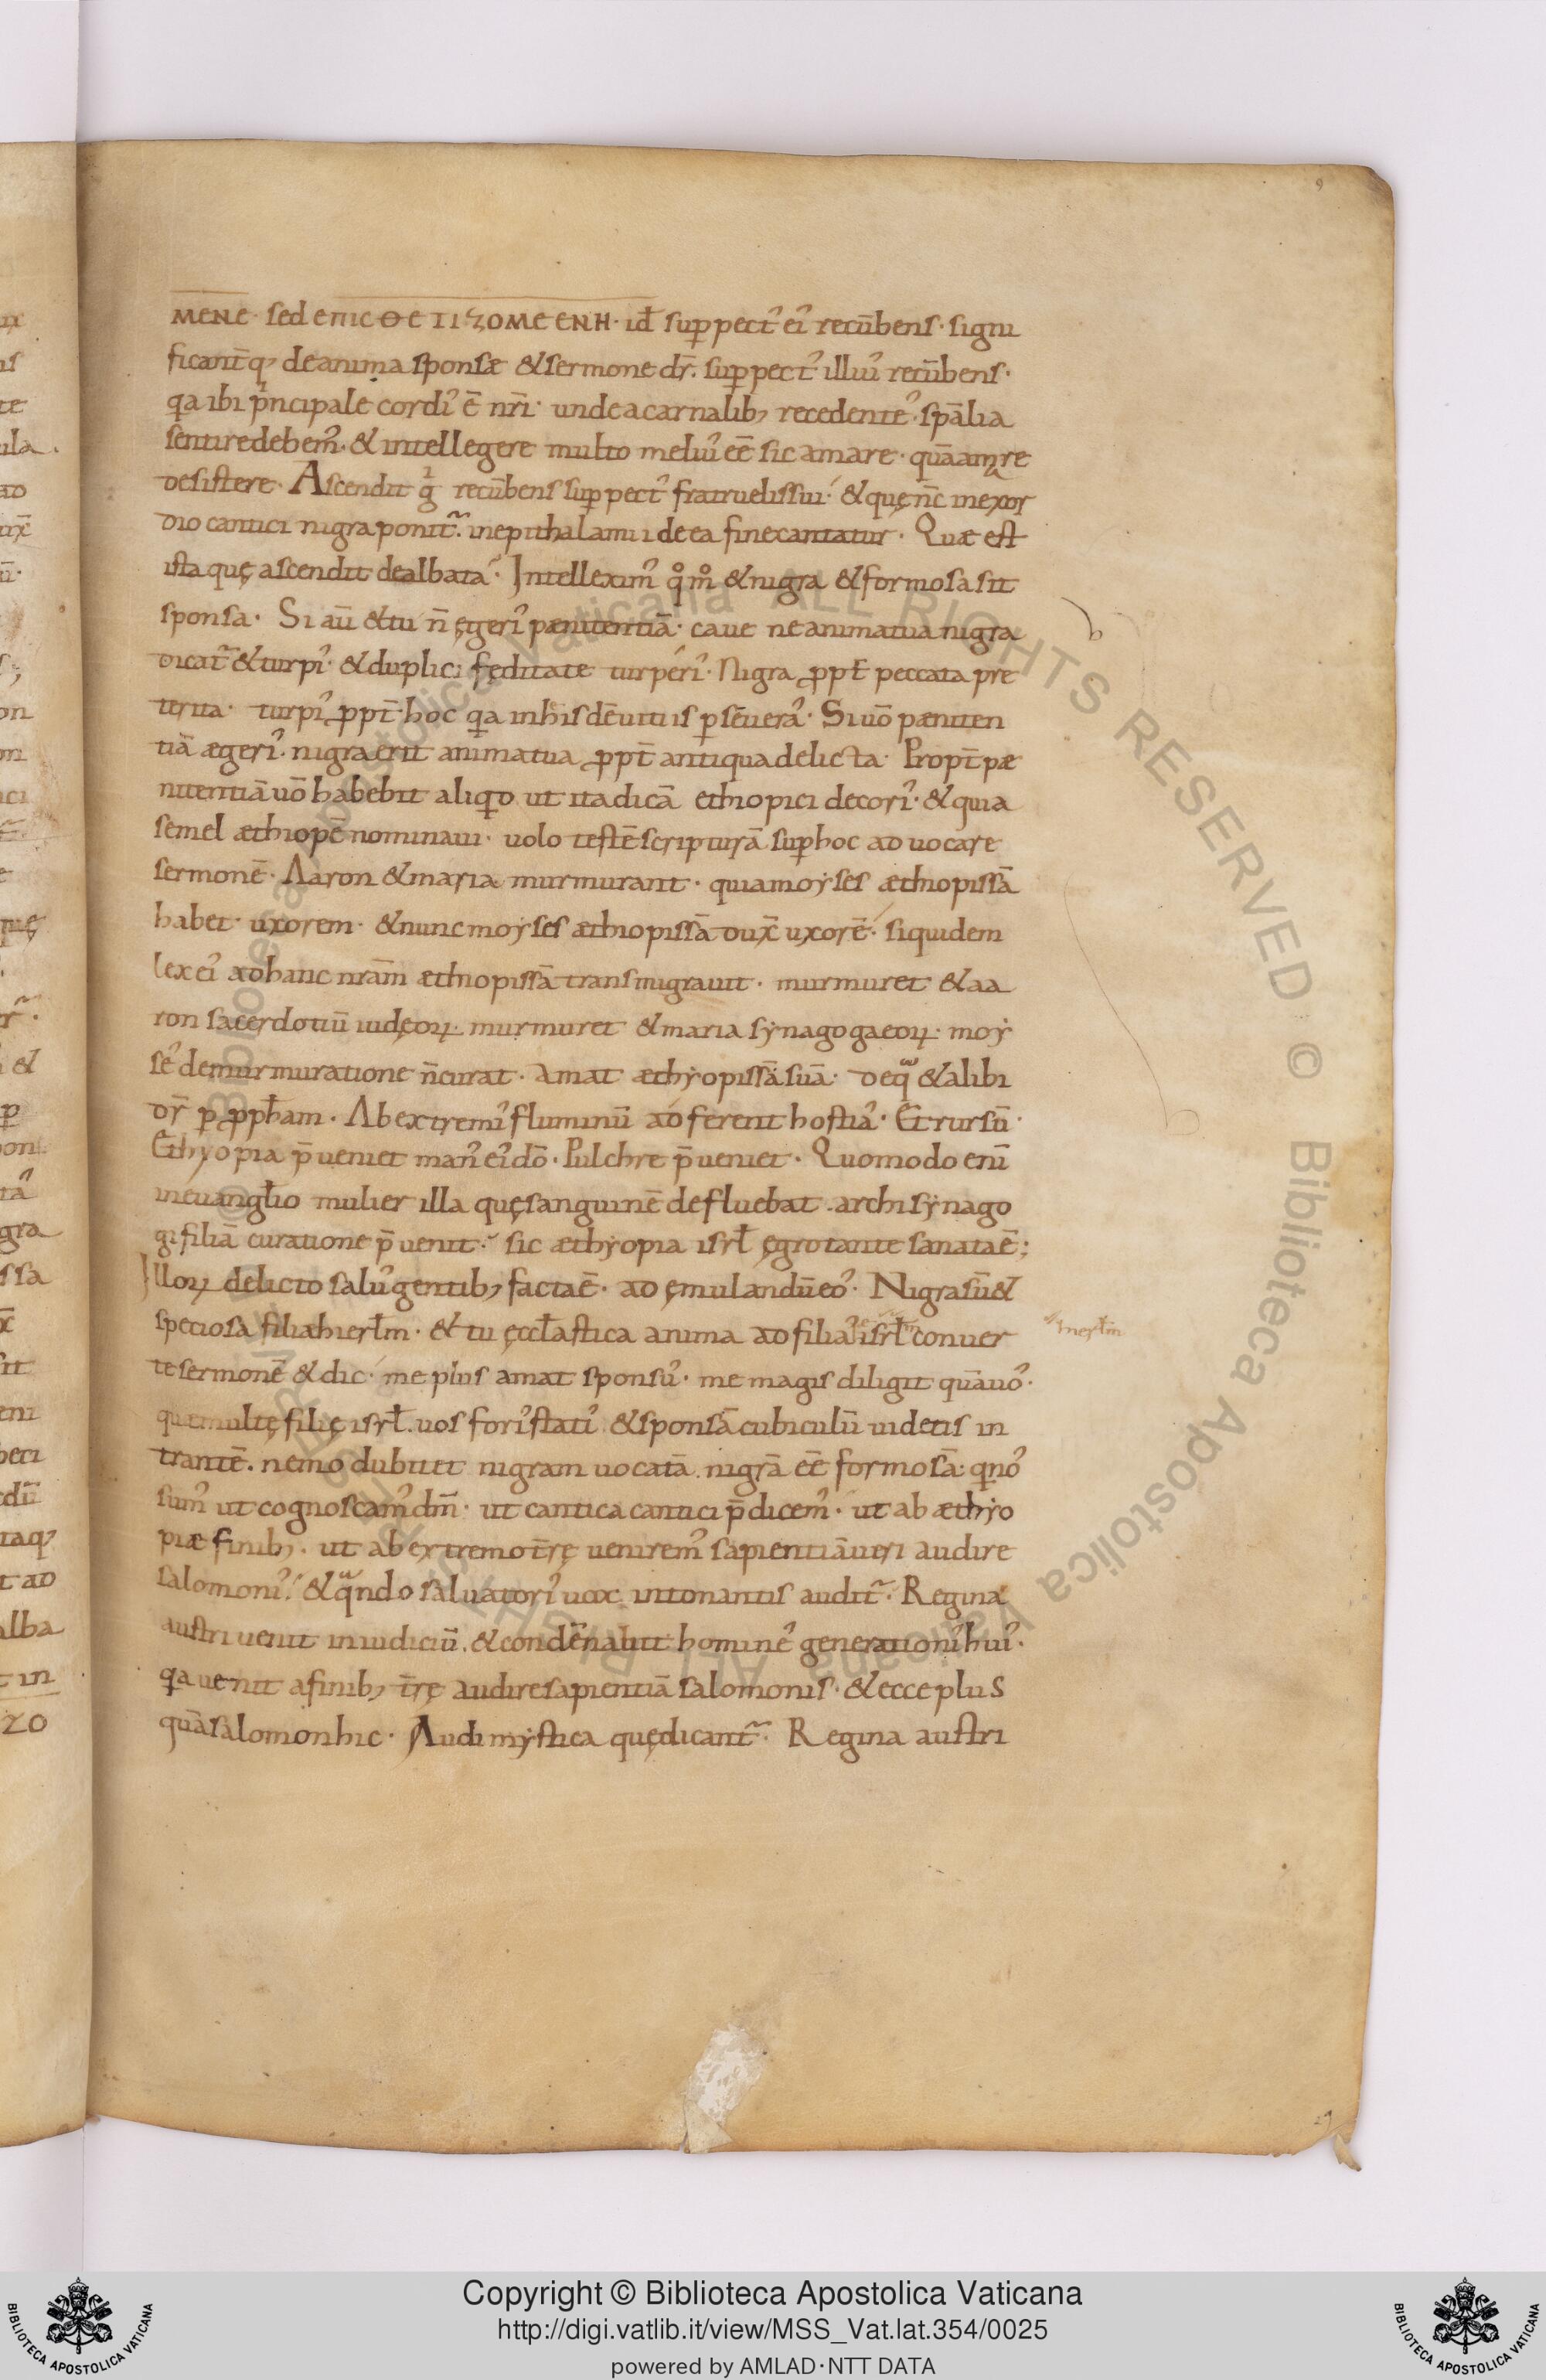 MENE· sed eπιϲΘΕΤΙΖΟΜΕΕΝΗ· id̵ suꝑ pect᾽ ei᾽ recūbens· signi
ficant̄q; de anima sponsæ & sermone dr̄. suꝑ pect᾽ illui᾽ recūbens·
qa ibi pͥncipale cordi᾽ ē nr̄i· unde a carnalib; recedente᾽ sp̄alia
sentire debem᾽· & intellegere multo meliu᾽ eē sic amare· quā amare
desistere· Ascendit gͥ recūbens suꝑ pect᾽ fratruelis sui· & quę nc̄ in exor
dio cantici nigra ponit᷑. in epithalamii de ea fine cantatur· Quæ est
ista quę ascendit dealbata᷑· Intellexim᾽ qͦmͦ & nigra & formosa sit
sponsa· Si aū & tu n̄ ęgeri᾽ pænitentiā· caue ne anima tua nigra
dicat᷑ & turpi᾽· & duplici fęditate turperi᾽· Nigra ꝓpt̄ peccata pre
terita· turpi᾽ ꝓpt̄ hoc qa in hisdē uitiis ꝑseuera᾽· Si uō pæniten
tiā ægeri᾽· nigra erit anima tua ꝓpt̄ antiqua delicta· Propt̄ pæ
nitentiā uō habebit aliqd ut ita dicā ethiopici decori᾽· & quia
semel æthiopē nominaui· uolo testē scripturā suꝑ hoc aduocare
sermonē· Aaron & maria murmurant· quia moẏses æthiopissā
habet uxorem· & nunc moẏses æthiopissā dux̄ uxorē· siquidem
lex ei᾽ ad hanc nrām æthiopissā transmigrauit· murmuret & aa
ron sacerdotiū iudęoꝝ· murmuret & maria sẏnagoga eoꝝ· moẏ
se᾽ de murmuratione n̄ curat· Amat æthẏopissā suā· de qᷓ & alibi
dr̄ ꝑ ꝓph̄am· Ab extremi᾽ fluminū adferent hostia᾽· Et rursū·
Ethyopia p̄ueniet man᾽ ei᾽ dō· Pulchre p̄ueniet· Quomodo enī
in euangl̄io mulier illa quę sanguinē defluebat· archisẏnago
gi filiā curatione p̄uenit᷑· sic æthẏopia isrl̄ ęgrotante sanata ē;
Illoꝝ delicto salu᾽ gentib; facta ē· ad ęmulandū eo᾽· Nigra sū &
speciosa filia hierl̄m· & tu ęccl̄astica anima ad filia᾽ isrl̄ conuer
te sermonē & dic· me plus amat sponsu᾽· me magis diligit quā uo᾽·
quæ multę filię isrl̄. uos fori᾽ stati᾽ & sponsā cubiculū uidetis in
trantē. nemo dubitet nigram uocatā nigrā eē formosā· q no᾽
sum᾽ ut cognoscam᾽ dm̄· ut cantica cantici p̄dicem᾽· ut ab æthẏo
piæ finib;· ut ab extremo tr̄ę uenirem᾽ sapientiā ueri audire
salomoni᾽· & qᷓndo saluatori᾽ uox intonantis audit᷑· Regina
austri uenit in iudiciū. & condēnabit homine᾽ generationi᾽ hui᾽·
qa uenit a finib; tr̄ę audire sapientiā salomonis· & ecce plus
quā salomon hic· Audi mẏstica quę dicant᷑· Regina austri
Copyright © Biblioteca Apostolica Vaticana
http://digi.vatlib.it/view/MSS_Vat.lat.354/0025
powered by AMLAD·NTT DATA